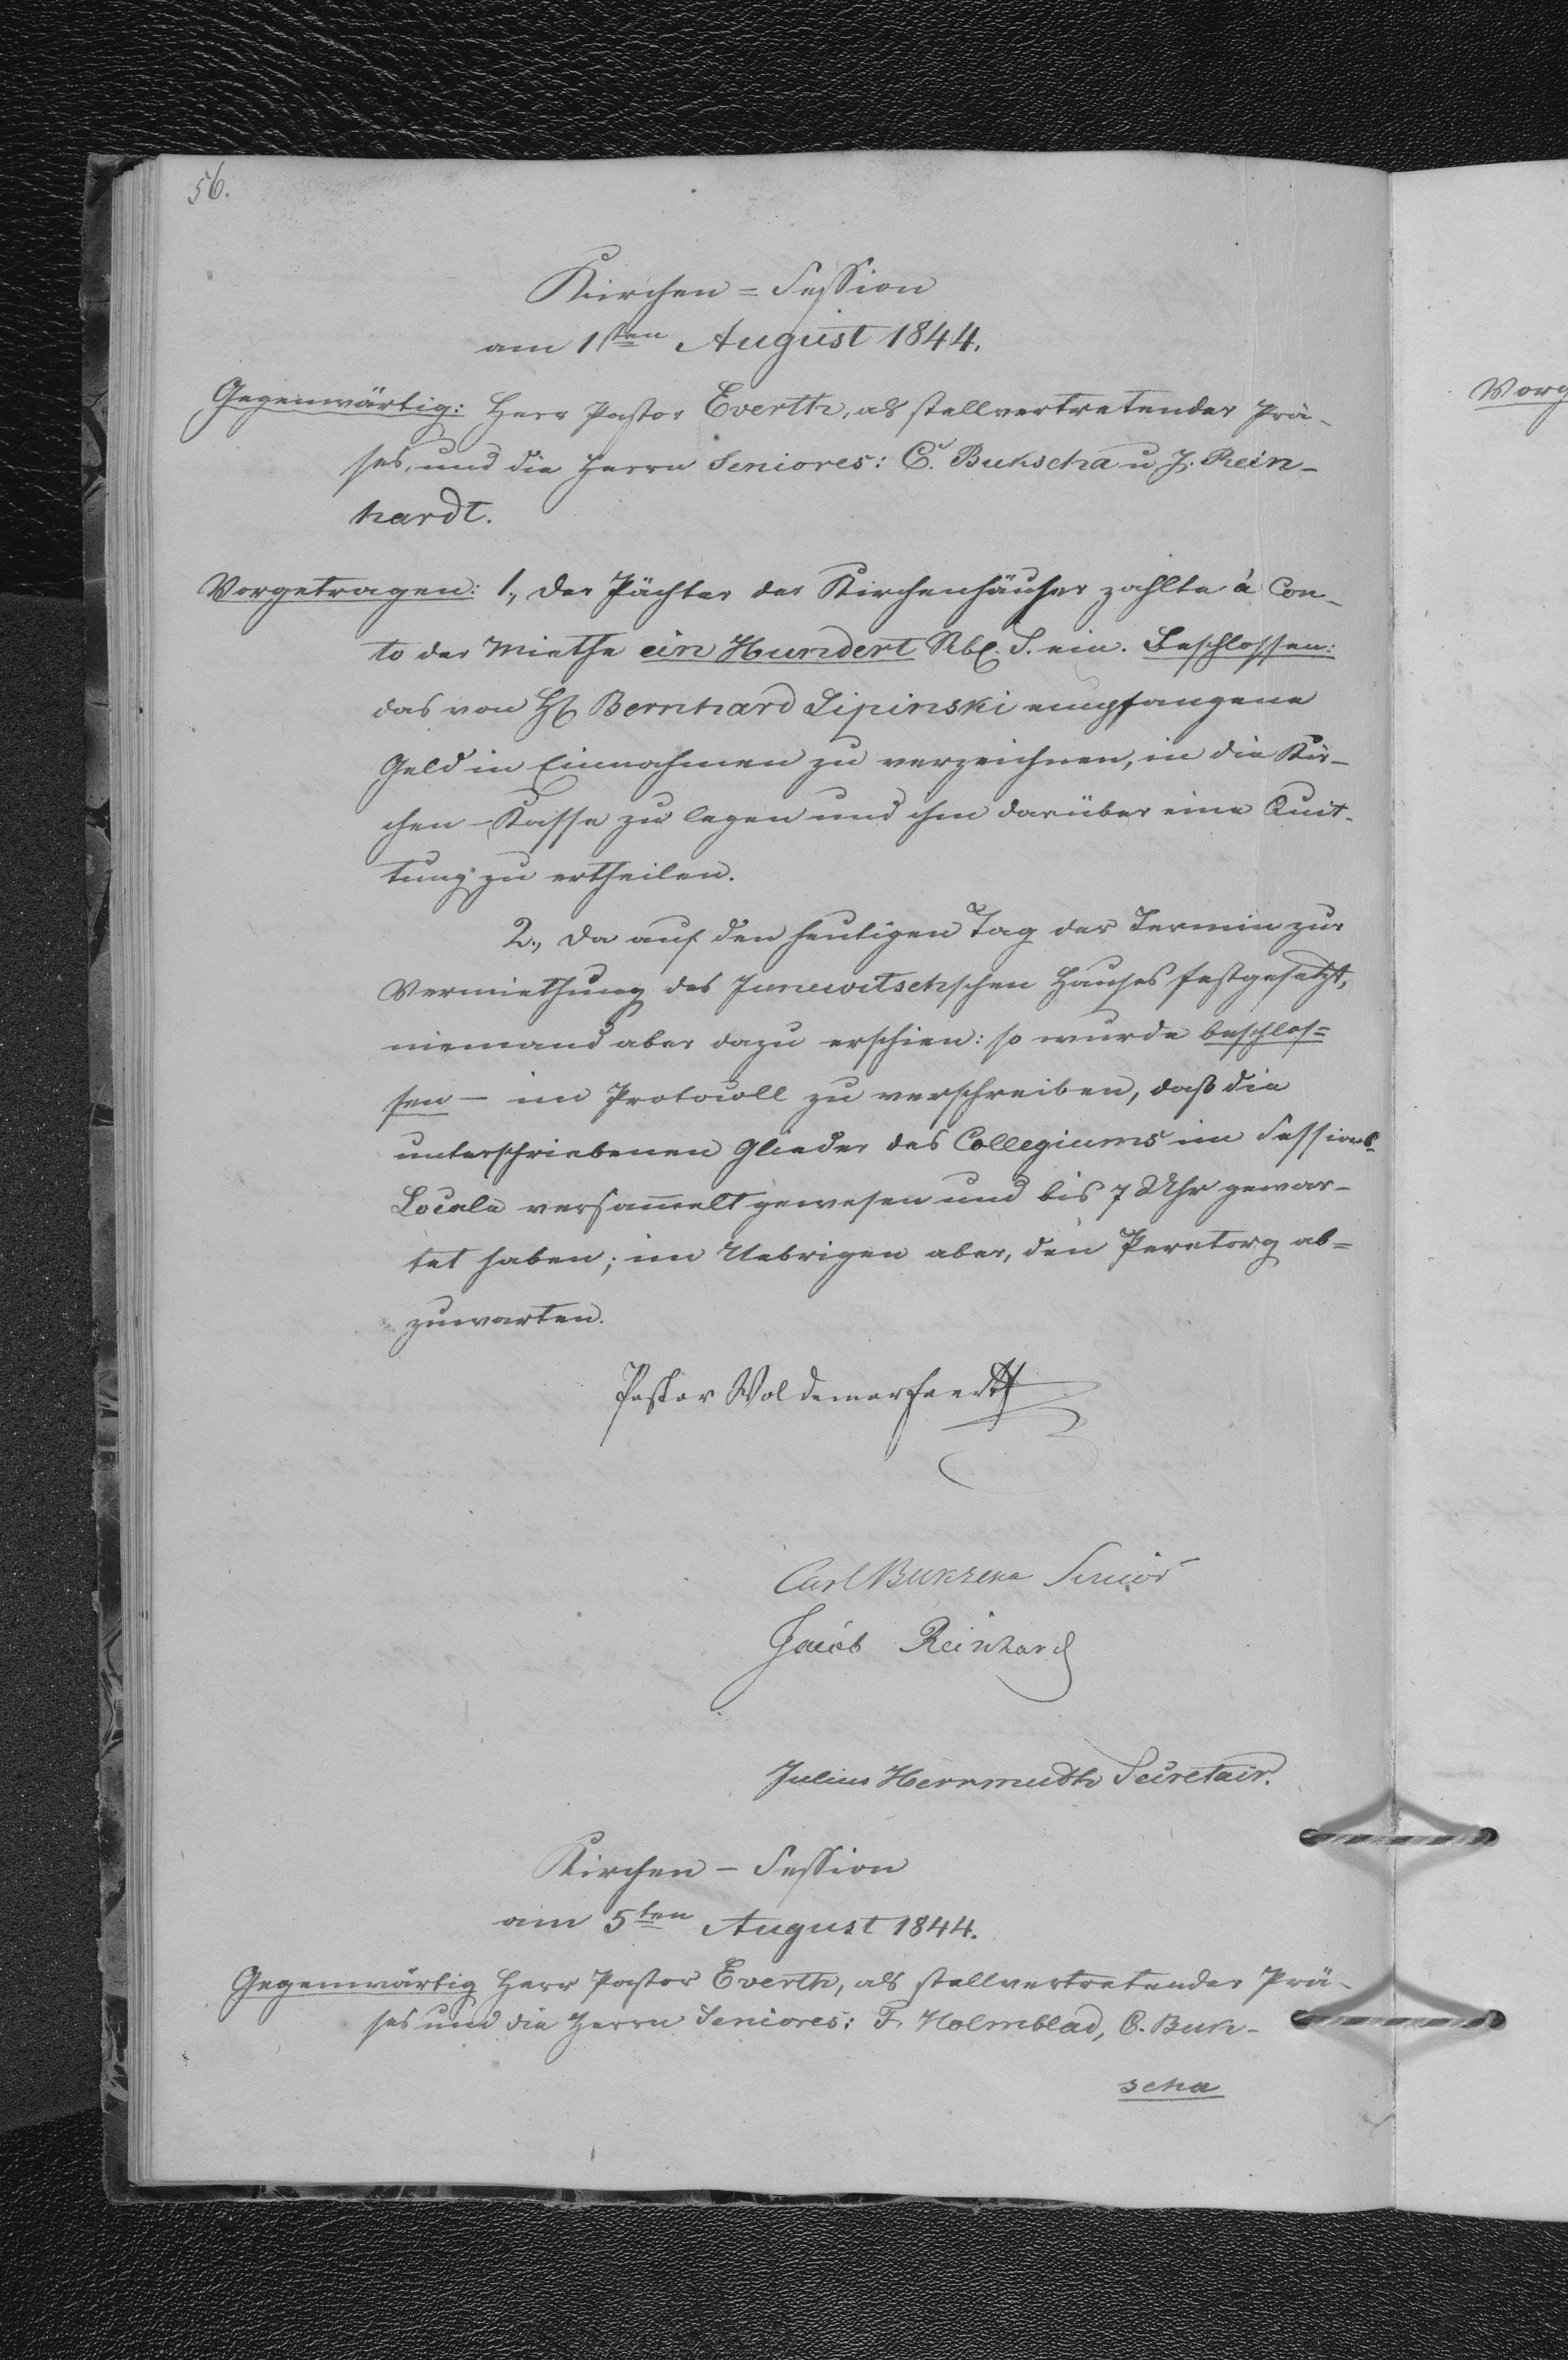 56.
Kirchen=Session
am 1sten August 1844.
Gegenwärtig: Herr Pastor Everth, als stellvertretender Prä-
ses, und die Herrn Seniores: C. Bukscha u J. Rein-
hardt.
Vorgetragen: 1., Der Pächter der Kirchenhäuser zahlte à Con-
to der Miethe ein Hundert Rbl. S. ein. Beschlossen:
das von H Bernhard Lipinski empfangene
Geld in Einnahmen zu verzeichnen, in die Kir-
chen-Kasse zu legen und ihm darüber eine Quit-
tung zu ertheilen.
2., Da auf den heutigen Tag der Termin zur
Vermiethung des Junewitschschen Hauses festgesetzt,
niemand aber dazu erschien: so wurde beschlos=
sen - im Protocoll zu verschreiben, daß die
unterschriebenen Glieder des Collegiums im Sessions-
Locale versam̄elt gewesen und bis 7 Uhr gewar-
tet haben; im Uebrigen aber, den Peretorg ab=
zuwarten.
Pastor Woldemar Everth
Carl Bukscha Senior
Jacob Reinhard
Julius Herrmudth Secretair.
Kirchen-Session
am 5ten August 1844.
Gegenwärtig Herr Pastor Everth, als stellvertretender Prä-
ses und die Herrn Seniores: F. Holmblad, C. Buk-
scha
Vorg